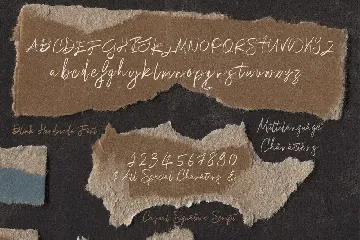 ABCDEFGHIJKLMNOPQRSTUVWXYZ
abcdefghijklmnopqrstuvwxyz
Multilanguage
Characters
1234567890
& All Special Characters &
Casual Signature Script